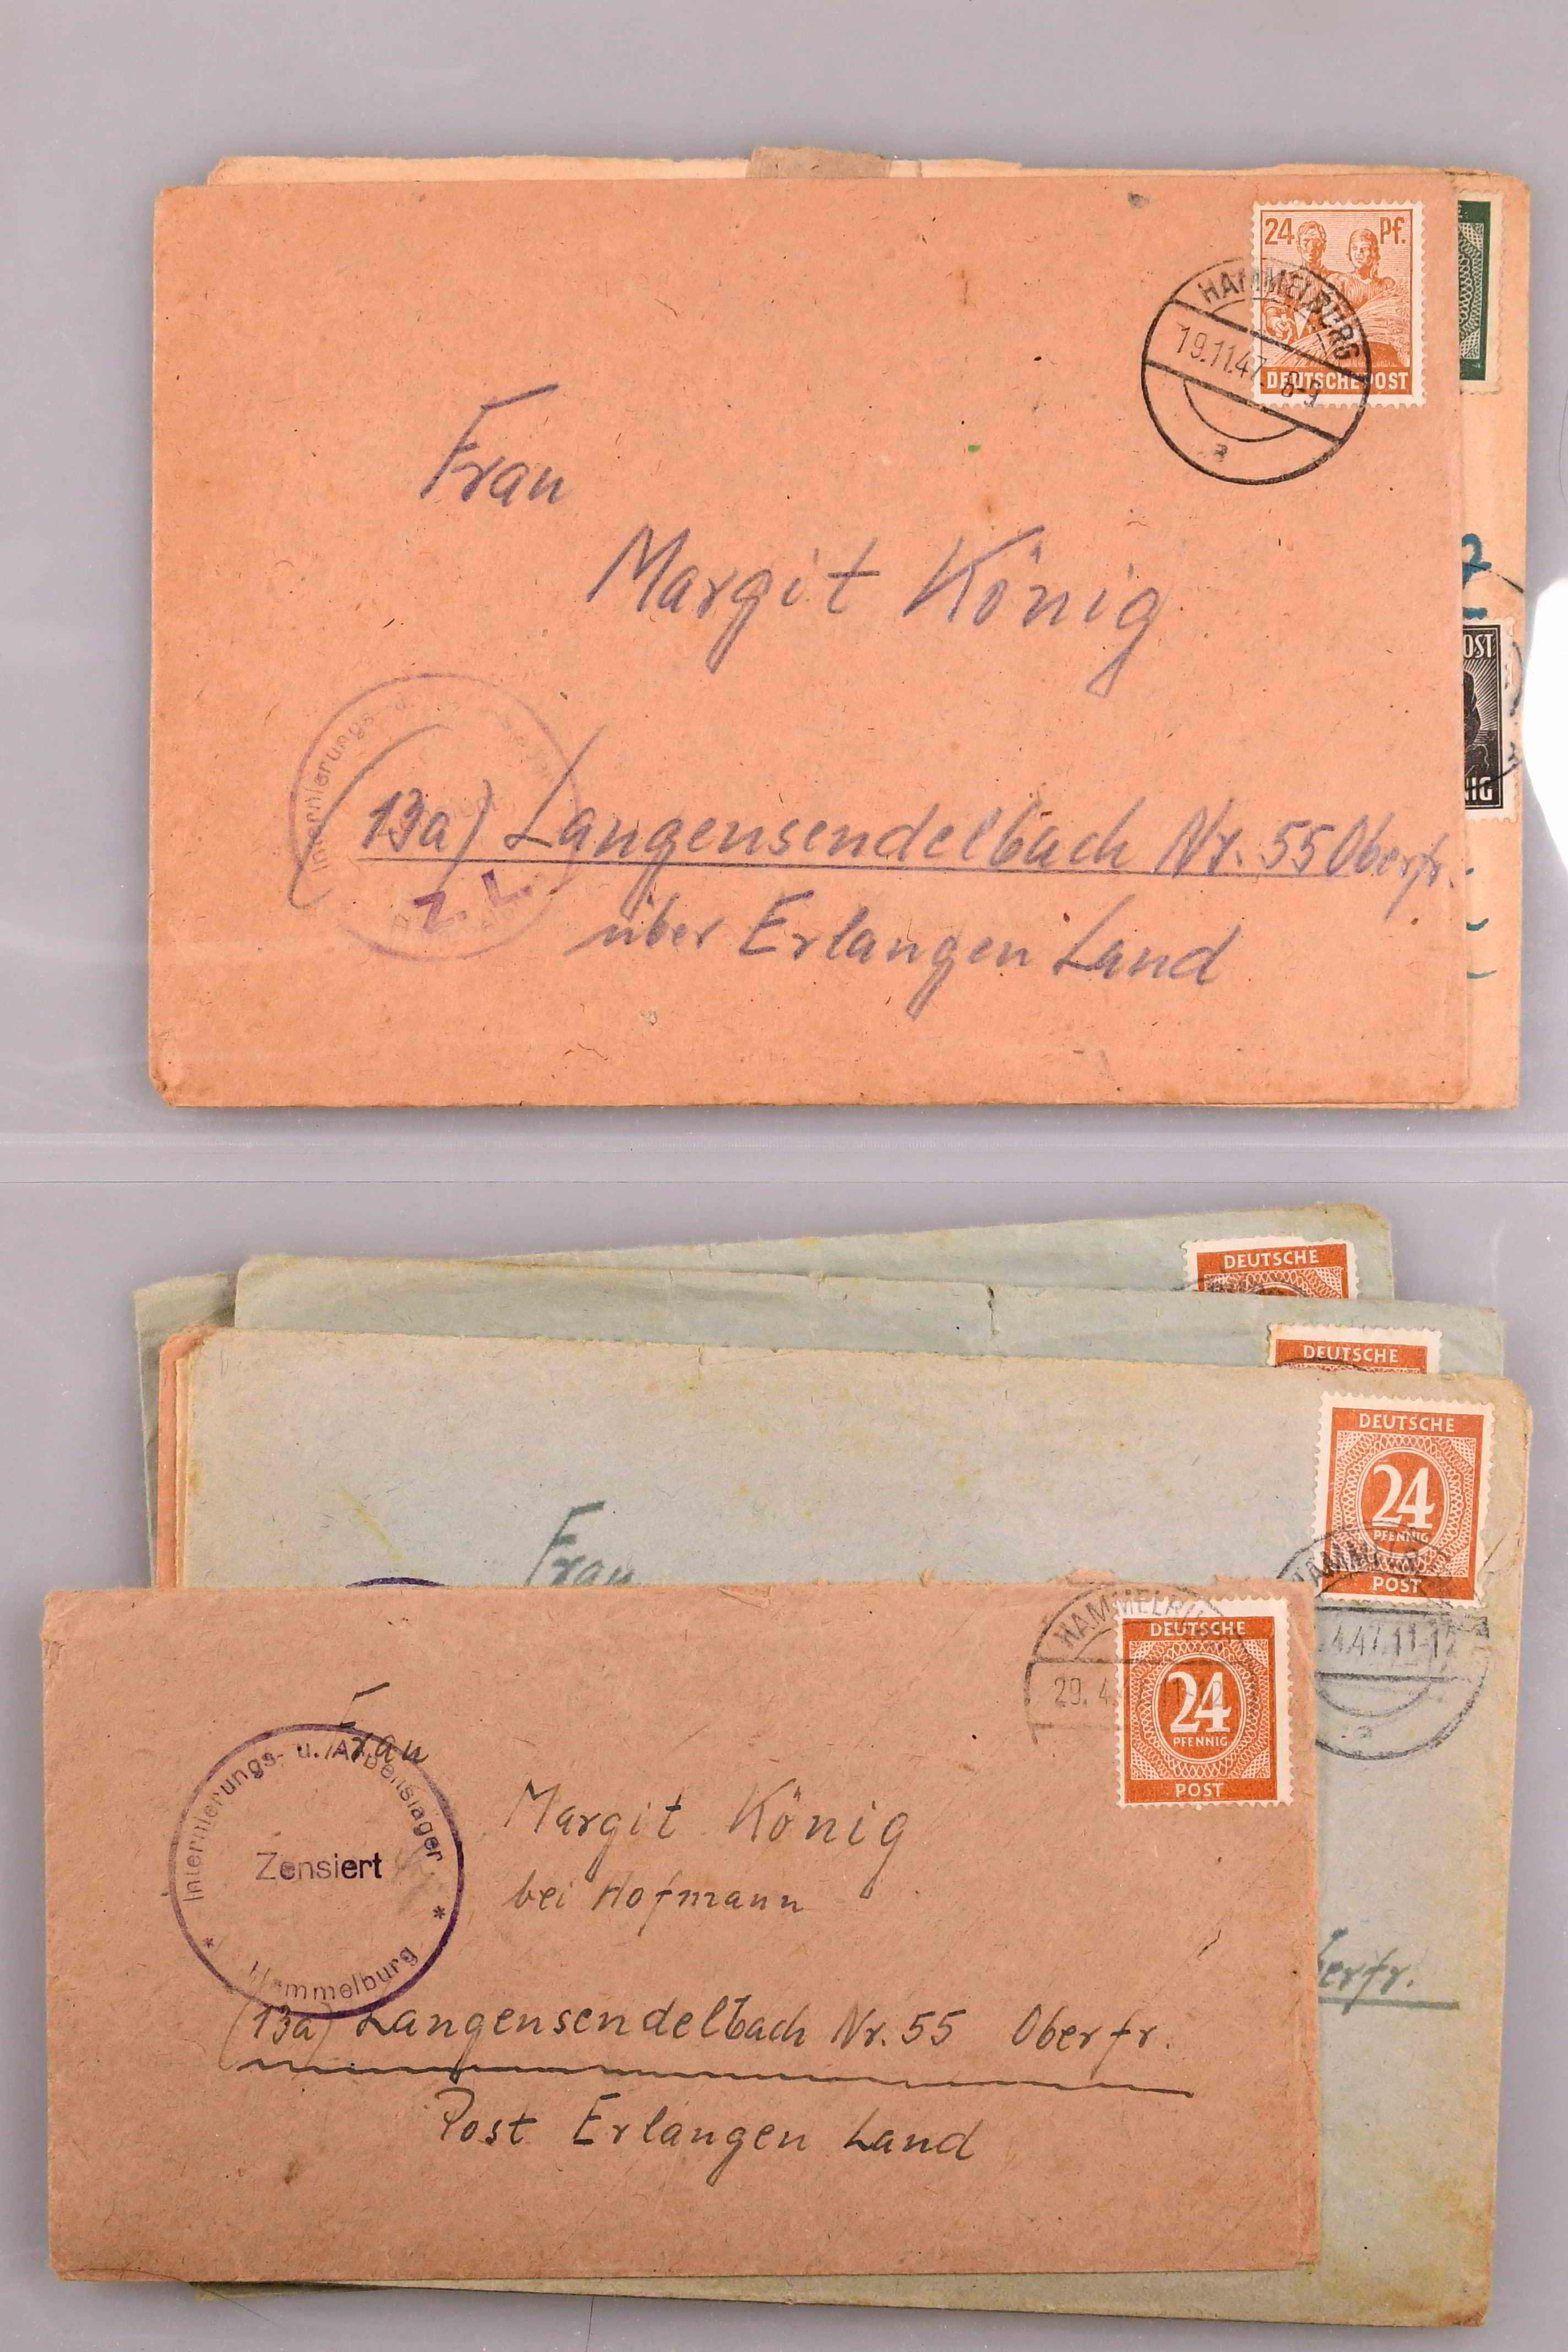 24 Pf.
DEUTSCHE POST
HAMMELBURG
19.11.47 8-9
a
Frau
Margit König
OST
NIG
Internierungs- u.
(13a) Langensendelbach Nr. 55 Oberfr.
Z. L.
über Erlangen Land
DEUTSCHE
DEUTSCHE
DEUTSCHE
24
PFENNIG
POST
4.47.11-12
a
Frau
HAMMELBURG
DEUTSCHE
24
PFENNIG
POST
29. 4
Frau
Internierungs- u. Arbeitslager
Zensiert
* Hammelburg *
Margit König
bei Hofmann
erfr.
(13a) Langensendelbach Nr. 55 Oberfr.
Post Erlangen Land